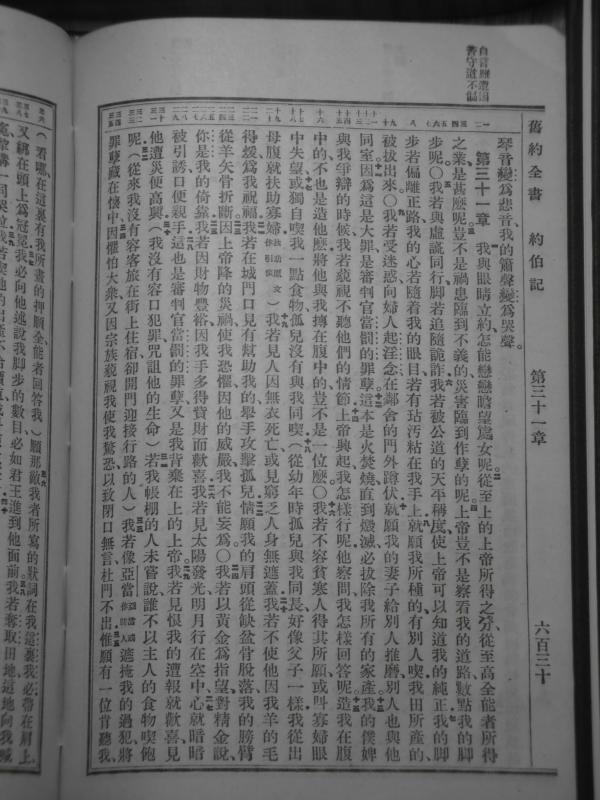 舊約全書 約伯記 第三十一章 六百三十
自言應遭因
善守道不偏
琴音變爲悲音我的簫聲變爲哭聲。
第三十一章 我與眼睛立約怎能戀戀瞻望處女呢從至上的上帝所得之分從至高全能者所得
之業是甚麼呢豈不是禍患臨到不義的災害臨到作孽的呢上帝豈不是察看我的道路數點我的脚
步呢〇我若與虛謊同行脚若追隨詭詐我若被公道的天平稱度使上帝可以知道我的純正我的脚
步若偏離正路我的心若隨着我的眼目若有玷汚粘在我手上就願我所種的有別人喫我田所產的
被拔出來〇我若受迷惑向婦人起淫念在鄰舍的門外蹲伏就願我的妻子給別人推磨別人也與他
同室因爲這是大罪是審判官當罰的罪孽這本是火焚燒直到燬滅必拔除我所有的家產我的僕婢
與我爭辯的時候我若藐視不聽他們的情節上帝興起我怎樣行呢他察問我怎樣回答呢造我在腹
中的不也是造他麽將他與我摶在腹中的豈不是一位麽〇我若不容貧寒人得其所願或叫寡婦眼
中失望或獨自喫我一點食物孤兒沒有與我同喫(從幼年時孤兒與我同長好像父子一樣我從出
母腹就扶助寡婦扶助原文作引領)我若見人因無衣死亡或見窮乏人身無遮蓋我若不使他因我羊的毛
得煖爲我祝福我若在城門口見有幫助我的舉手攻擊孤兒情願我的肩頭從缺盆骨脫落我的膀臂
從羊矢骨折斷因上帝降的災禍使我恐懼因他的威嚴我不能妄爲〇我若以黃金爲指望對精金說
你是我的倚靠我若因財物豐裕因我手多得資財而歡喜我若見太陽發光明月行在空中心就暗暗
被引誘口便親手這也是審判官當罰的罪孽又是我背棄在上的上帝我若見恨我的遭報就歡喜見
他遭災便高興(我沒有容口犯罪咒詛他的生命)若我帳棚的人未嘗說誰不以主人的食物喫飽
呢(從來我沒有容客旅在街上住宿卻開門迎接行路的人)我若像亞當遮掩我的過犯將
罪孽藏在懷中因懼怕大衆又因宗族藐視我使我驚恐以致閉口無言杜門不出惟願有一位肯聽我
(看哪在這裏有我所畫的押願全能者回答我)願那敵我者所寫的狀詞在我這裏我必帶在肩上
又綁在頭上爲冠冕我必向他述說我脚步的數目必如君王進到他面前我若奪取田地這地向我喊